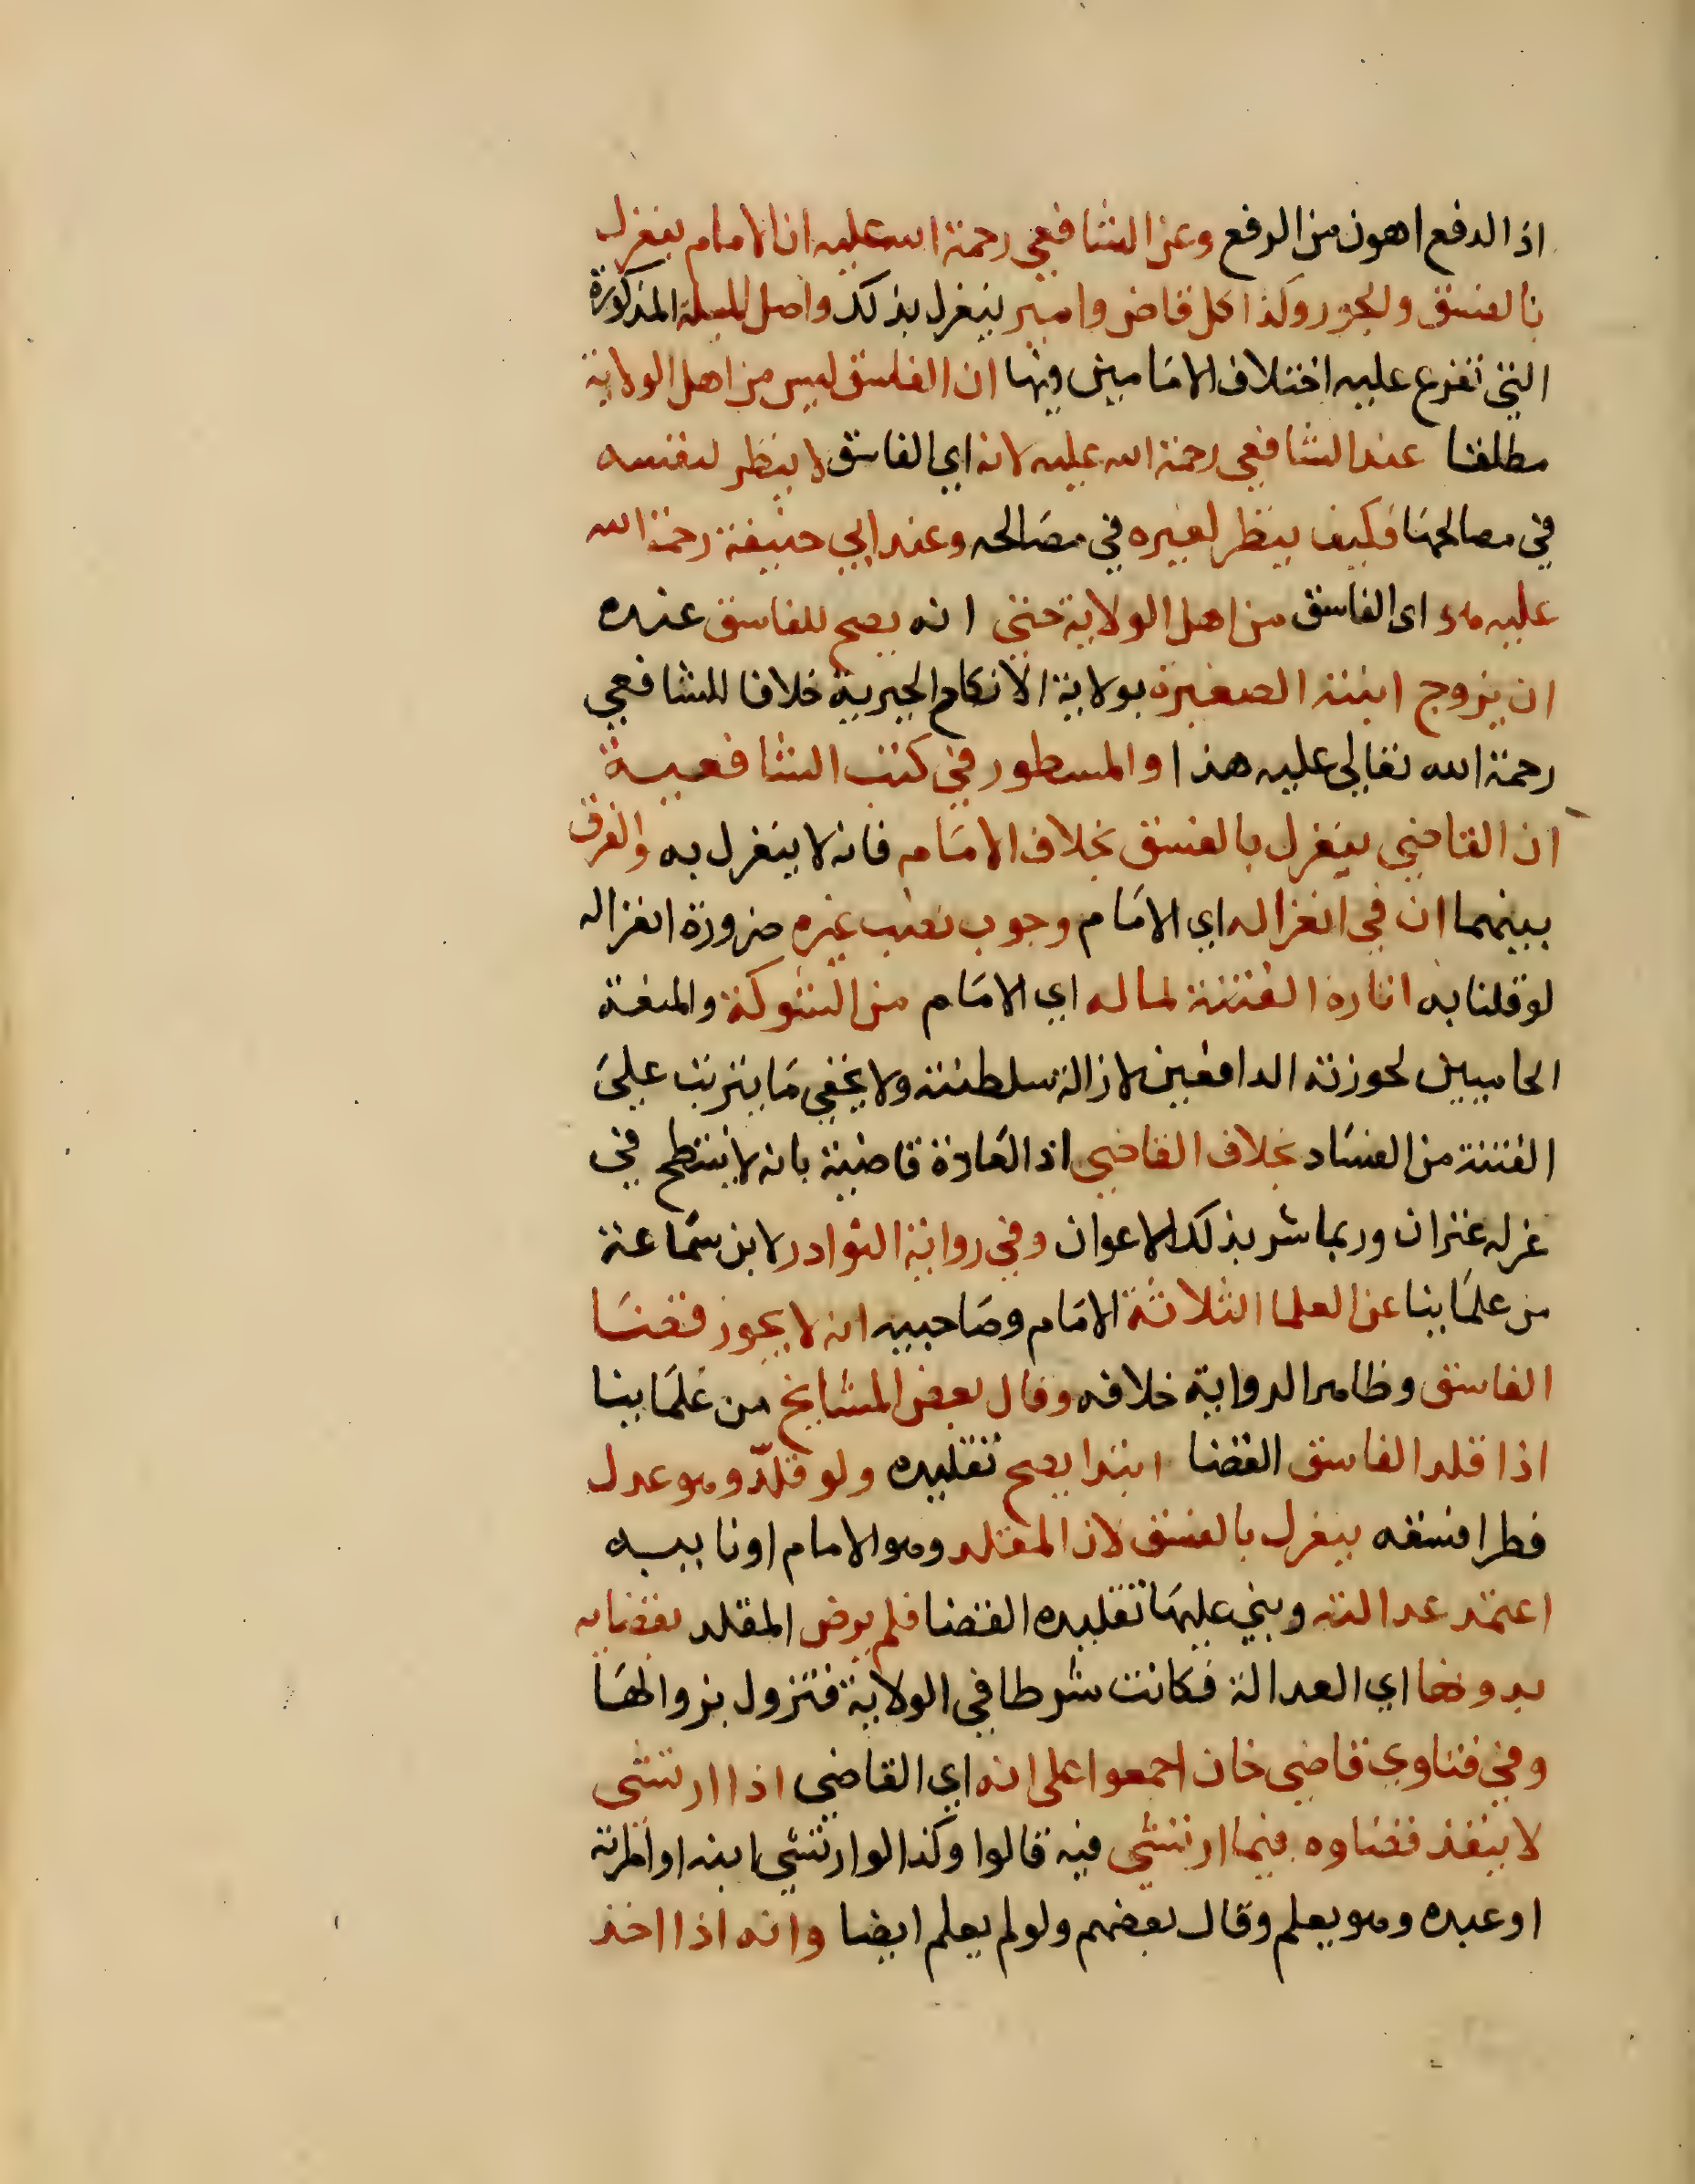 اذ الدفع اهون من الرفع وعن الشافعي رحمة الله عليه ان الامام ينعزل
بالفسق والجور وكذا كل قاض وامير ينعزل بذلك واصل المسئلة المذكورة
التي تفرع عليه اختلاف الامامين فيها ان الفاسق ليس من اهل الولاية
مطلقا عند الشافعي رحمة الله عليه لانه اي الفاسق لا ينظر لنفسه
في مصالحها فكيف ينظر لغيره في مصالحه وعند ابي حنيفة رحمة الله
عليه هو اى الفاسق من اهل الولاية حتى انه يصح للفاسق عنده
ان يزوج ابنته الصغيرة بولاية الانكاح الجبرية خلافا للشافعي
رحمة الله تعالى عليه هذا والمسطور في كتب الشافعية
ان القاضي ينعزل بالفسق بخلاف الامام فانه لا ينعزل به والفرق
بينهما ان في انعزاله اي الامام وجوب نصب غيره ضرورة انعزاله
لو قلنا به اثارة الفتنة لما له اي الامام من الشوكة والمنعة
الحاميين لحوزته الدافعين لازالة سلطنته ولا يخفي ما يترتب علي
الفتنة من الفساد بخلاف القاضي اذ العادة قاضية بانه لا ينتطح في
عزله عنزان وربما سر بذلك الاعوان وفي رواية النوادر لابن سماعة
من علماينا عن العلما الثلاثة الامام وصاحبيه انه لا يجوز قضا
الفاسق وظاهر الرواية خلافه وقال بعض المشايخ من علماينا
اذا قلد الفاسق القضا ابتدا يصح تقليده ولو قلّد وهو عدل
فطرا فسقه ينعزل بالفسق لان المقلد وهو الامام او نايبه
اعتمد عدالته وبني عليها تقليده القضا فلم يرض المقلد بقضايه
بدونها اي العدالة فكانت شرطا في الولاية فتزول بزوالها
وفي فتاوي قاضي خان اجمعوا على انه اي القاضي اذا ارتشى
لا ينفذ قضاوه فيما ارتشي فيه قالوا وكذا لو ارتشي ابنه او امراته
او عبده وهو يعلم وقال بعضهم ولو لم يعلم ايضا وانه اذا اخذ